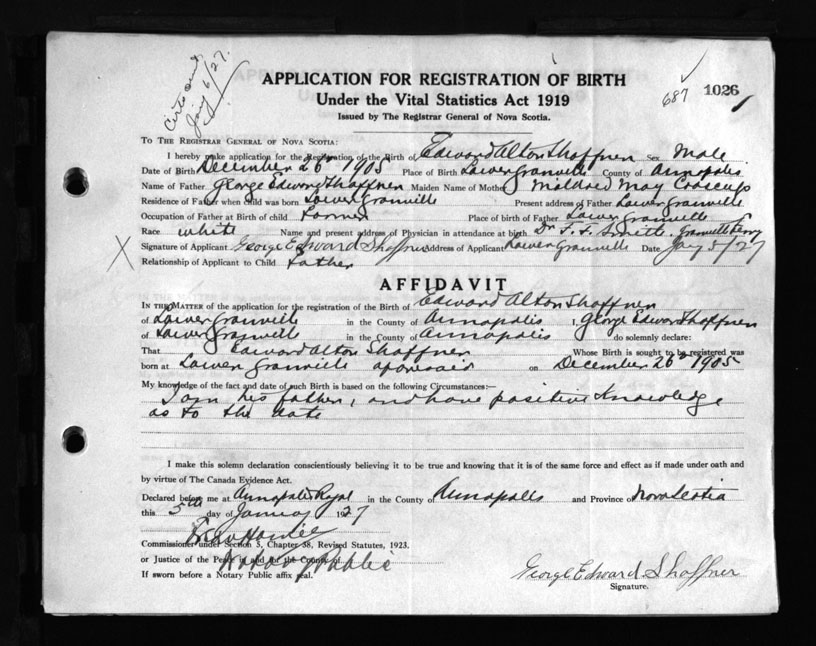 Jany 6/27.
687 1026
APPLICATION FOR REGISTRATION OF BIRTH
Under the Vital Statistics Act 1919
Issued by The Registrar General of Nova Scotia.
TO THE REGISTRAR GENERAL OF NOVA SCOTIA:
I hereby make application for the Registration of the Birth of Edward Alton Shaffner Sex Male
Date of Birth December 26th 1905 Place of Birth Lower Granville County of Annapolis
Name of Father George Edward Shaffner Maiden Name of Mother Mildred May Croscup
Residence of Father when child was born Lower Granville Present address of Father Lower Granville
Occupation of Father at Birth of child Farmer Place of birth of Father Lower Granville
Race white Name and present address of Physician in attendance at birth Dr. F. F. Smith Granville Ferry
X Signature of Applicant George Edward Shaffner Address of Applicant Lower Granville Date Jany 5/27
Relationship of Applicant to Child Father
AFFIDAVIT
IN THE MATTER of the application for the registration of the Birth of Edward Alton Shaffner
of Lower Granville in the County of Annapolis I, George Edward Shaffner
of Lower Granville in the County of Annapolis do solemnly declare:
That Edward Alton Shaffner Whose Birth is sought to be registered was
born at Lower Granville aforesaid on December 26th 1905
My knowledge of the fact and date of such Birth is based on the following Circumstances:—
I am his father, and have positive knowledge
as to the date
I make this solemn declaration conscientiously believing it to be true and knowing that it is of the same force and effect as if made under oath and
by virtue of The Canada Evidence Act.
Declared before me at Annapolis Royal in the County of Annapolis and Province of Nova Scotia
this 5th day of January 1927
Commissioner under Section 5, Chapter 38, Revised Statutes, 1923.
or Justice of the Peace in and for the County of
Notary Public
If sworn before a Notary Public affix seal.
George Edward Shaffner
Signature.